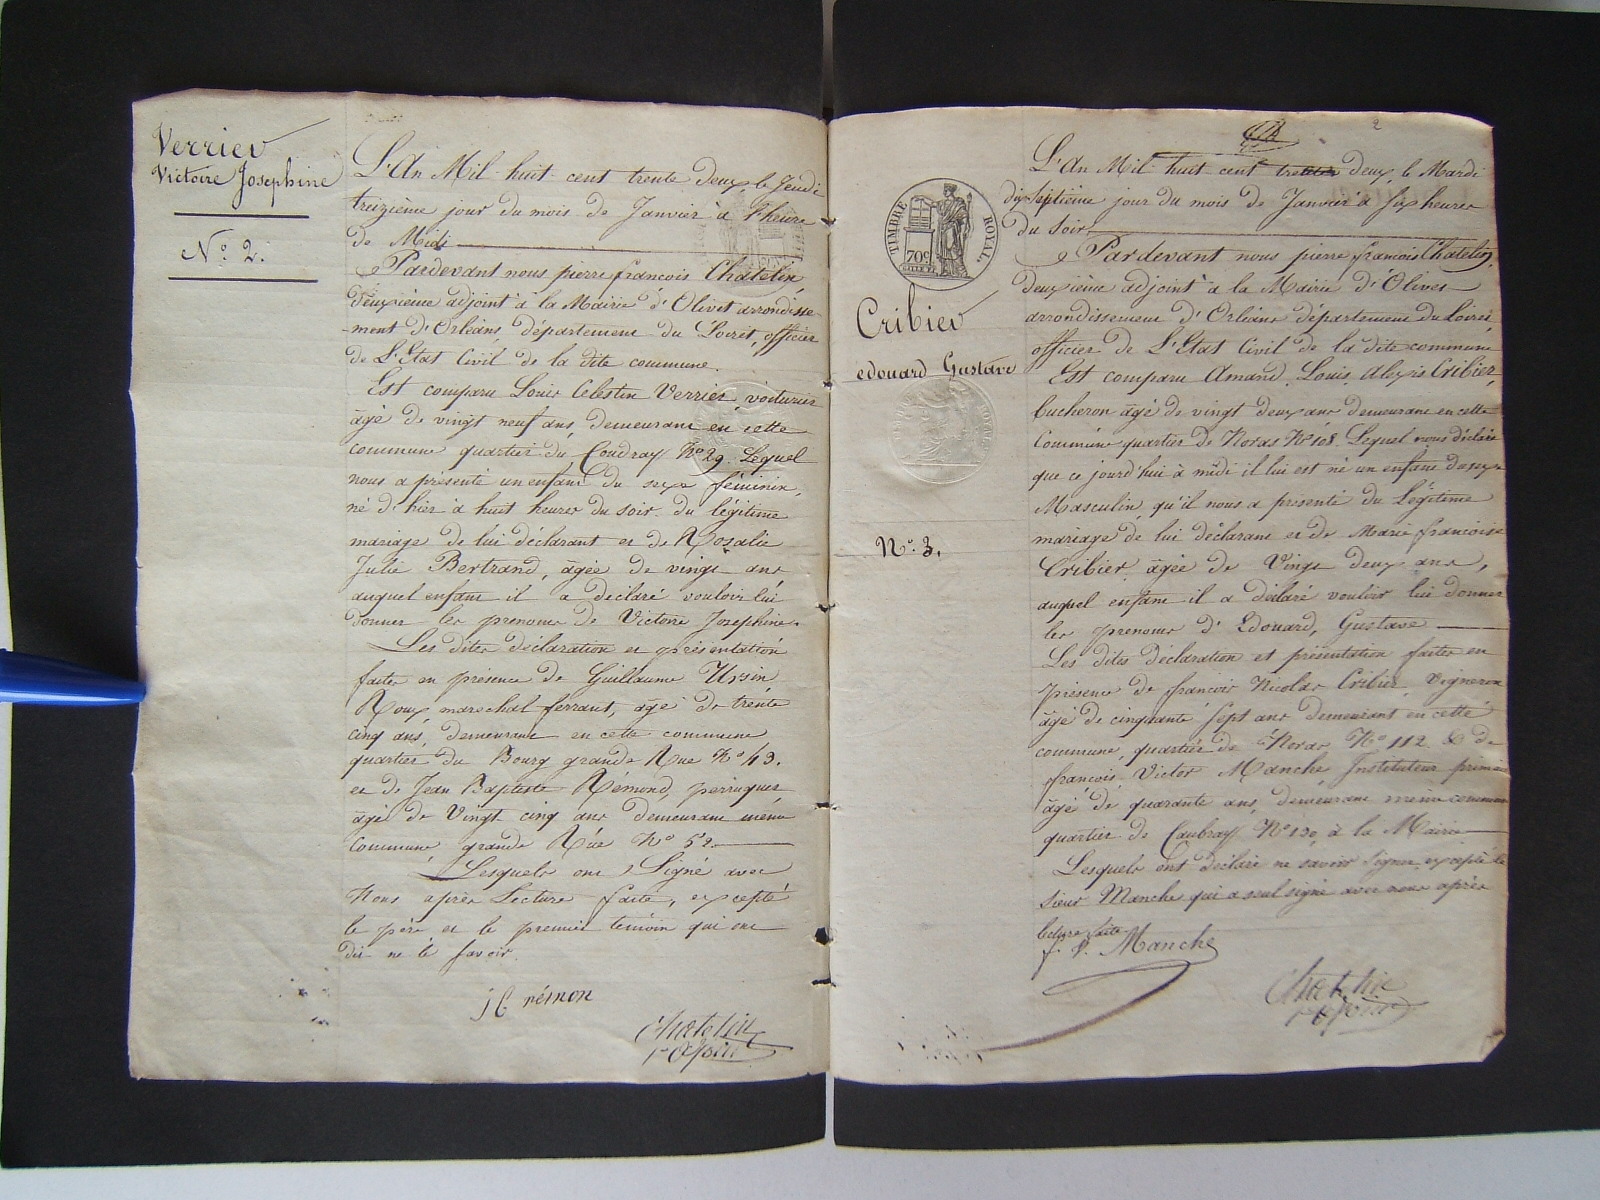 Verrier
Victoire Josephine
N.o 2.
L'An Mil huit cent trente deux le Jeudi
treizième jour du mois de Janvier à heure
de Midi
Pardevant nous pierre françois Chatelin,
deuxième adjoint à la Mairie d'Olivet arrondisse-
-ment d'Orléans, département du Loiret, officier
de L'Etat Civil de la dite commune.
Est comparu Louis Celestin Verrier, voiturier
âgé de vingt neuf ans, demeurant en cette
commune quartier du Coudray N.o 29. Lequel
nous a présenté un enfant du sexe féminin,
né d'hier à huit heures du soir du légitime
mariage de lui déclarant et de Rosalie
Julie Bertrand, âgée de vingt ans
auquel enfant il a déclaré vouloir lui
donner les prenoms de Victoire Josephine.
Les dites déclaration et présentation
faites en présence de Guillaume Ursin
Roux, marechal ferrant, âgé de trente
cinq ans, demeurant en cette commune
quartier du Bourg grande Rue N.o 43.
et de Jean Baptiste Rémond, perruquier
âgé de Vingt cinq ans demeurant même
Commune, grande Rue N.o 52.
Lesquels ont Signé avec
Nous après Lecture faite, excepté
le père et le premier témoin qui ont
dit ne le savoir.
rémon
Chatelin
2
TIMBRE ROYAL.
70c
Cribier
edouard Gustave
N.o 3.
L'An Mil huit cent trente deux, le Mardi
dix Septième jour du mois de Janvier à six heures
du soir
Pardevant nous pierre francois Chatelin,
deuxième adjoint à la Mairie d'Olivet
arrondissement d'Orléans département du Loiret,
officier de L'Etat Civil de la dite commune
Est comparu Amand, Louis, Alexis Cribier,
bucheron âgé de vingt deux ans demeurant en cette
Commune quartier de Noras N.o 108. Lequel nous déclare
que ce jourd'hui à midi il lui est né un enfant du sexe
Masculin, qu'il nous a présenté du Légitime
mariage de lui déclarant et de Marie francoise
Cribier âgée de Vingt deux ans,
auquel enfant il a déclaré vouloir lui donner
les prenoms d'Edouard, Gustave
Les dites déclaration et présentation faites en
présence de francois Nicolas Cribier Vigneron
âgé de cinquante sept ans demeurant en cette
commune, quartier de Noras, N.o 112. & de
françois Victor Manche Instituteur primaire
âgé de quarante ans, demeurant même commune
quartier de N.o 130, à la Mairie
Lesquels ont déclaré ne savoir signer excepté le
sieur Manche qui a seul signé avec nous après
lecture faite
f. V. Manche
Chatelin